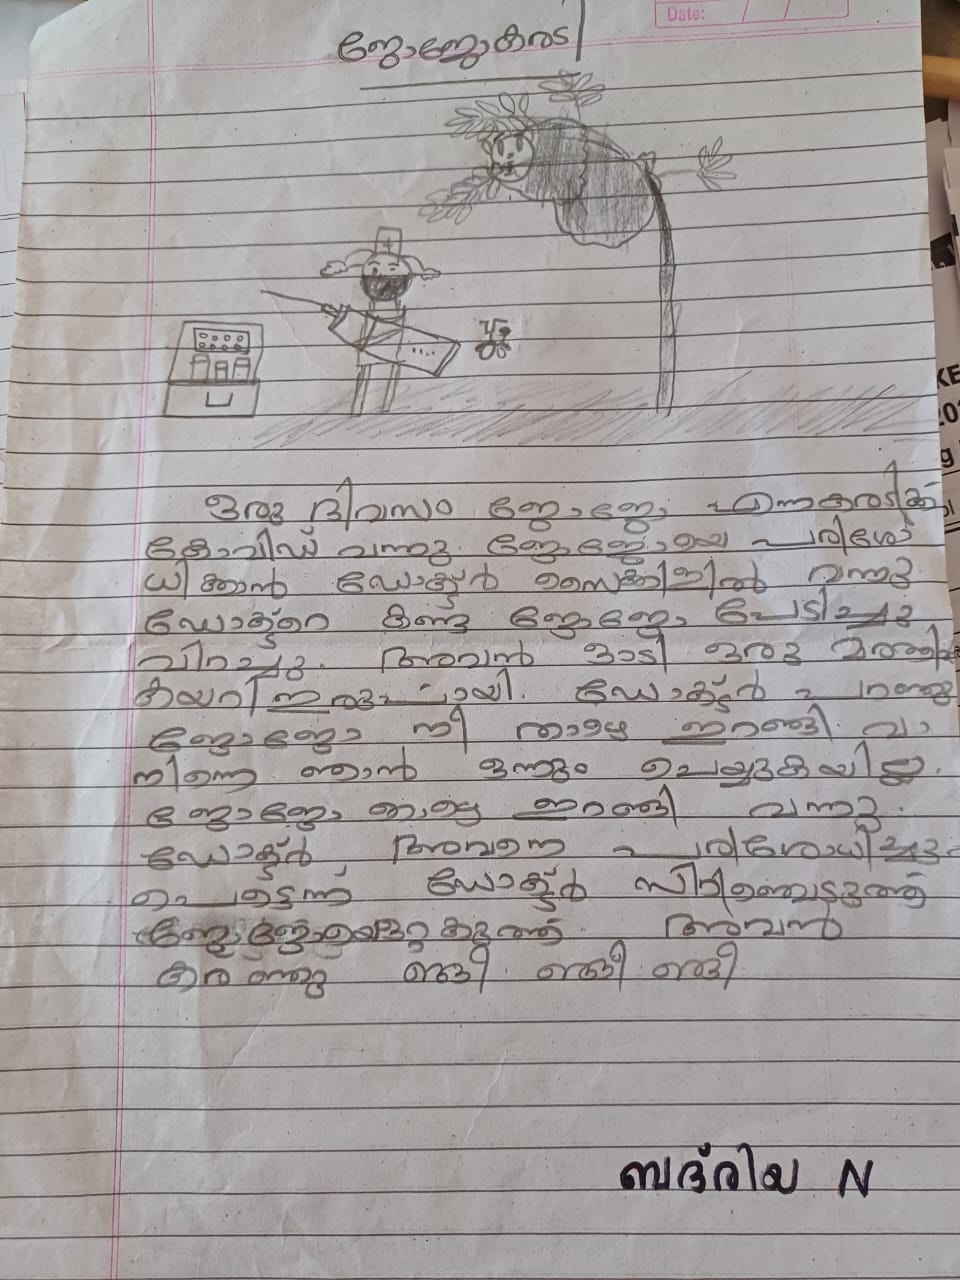 Date:
ജോജോകരടി
ഒരു ദിവസം ജോജോ എന്നകരടിക്ക്
കോവിഡ് വന്നു ജോജോയെ പരിശോ
ധിക്കാൻ ഡോക്ടർ സൈക്കിളിൽ വന്നു
ഡോക്ടറെ കണ്ടു ജോജോ പേടിച്ചു
വിറച്ചു. അവൻ ഓടി ഒരു മരത്തിൽ
കയറി ഇരുപ്പായി. ഡോക്ടർ പറഞ്ഞു
ജോജോ നീ താഴെ ഇറങ്ങി വാ
നിന്നെ ഞാൻ ഒന്നും ചെയ്യുകയില്ല.
ജോജോ താഴെ ഇറങ്ങി വന്നു.
ഡോക്ടർ അവനെ പരിശോധിച്ചു.
പെട്ടെന്ന് ഡോക്ടർ സിറിഞ്ചെടുത്ത്
അവൻ
കരഞ്ഞു ങ്ങീ ങ്ങീ ങ്ങീ
ബദ്‌രിയ N